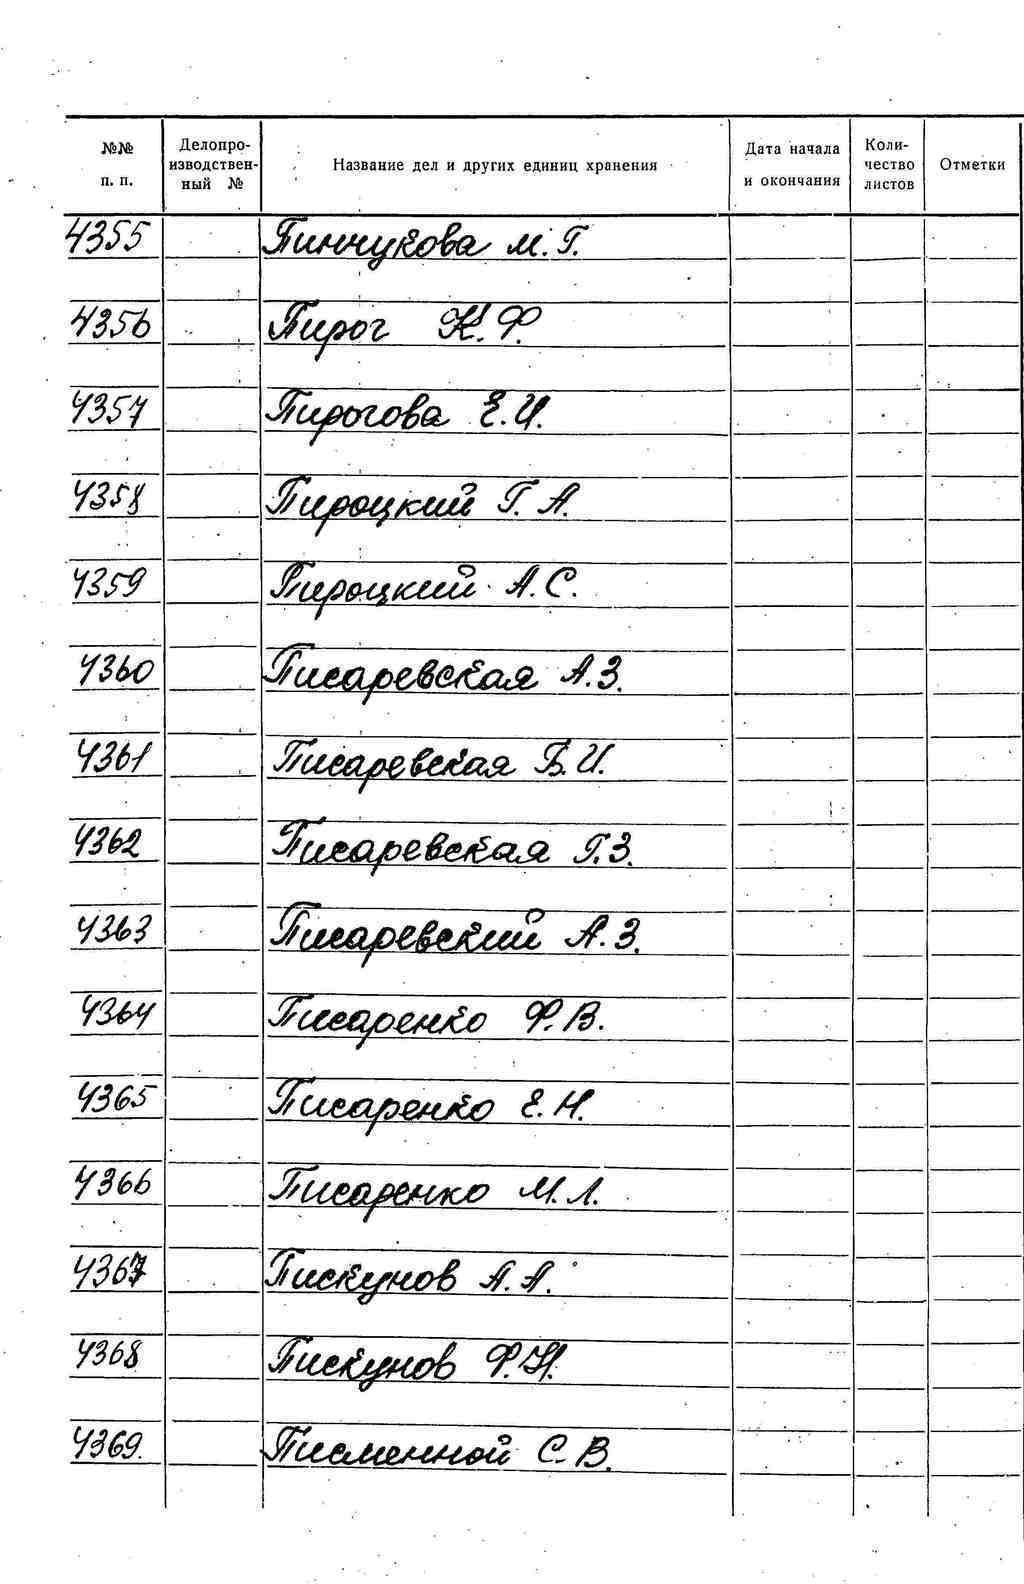 №№ п. п. Делопроизводственный № Название дел и других единиц хранения Дата начала и окончания Количество листов Отметки
4355 Пинчукова М. Г.
4356 Пирог К. Ф.
4357 Пирогова Е. И.
4358 Пироцкий Г. А.
4359 Пироцкий А. С.
4360 Писаревская А. З.
4361 Писаревская Б. И.
4362 Писаревская Г. З.
4363 Писаревский А. З.
4364 Писаренко Ф. В.
4365 Писаренко Е. Н.
4366 Писаренко М. Л.
4367 Пискунов А. А.
4368 Пискунов Ф. И.
4369. Писменной С. В.